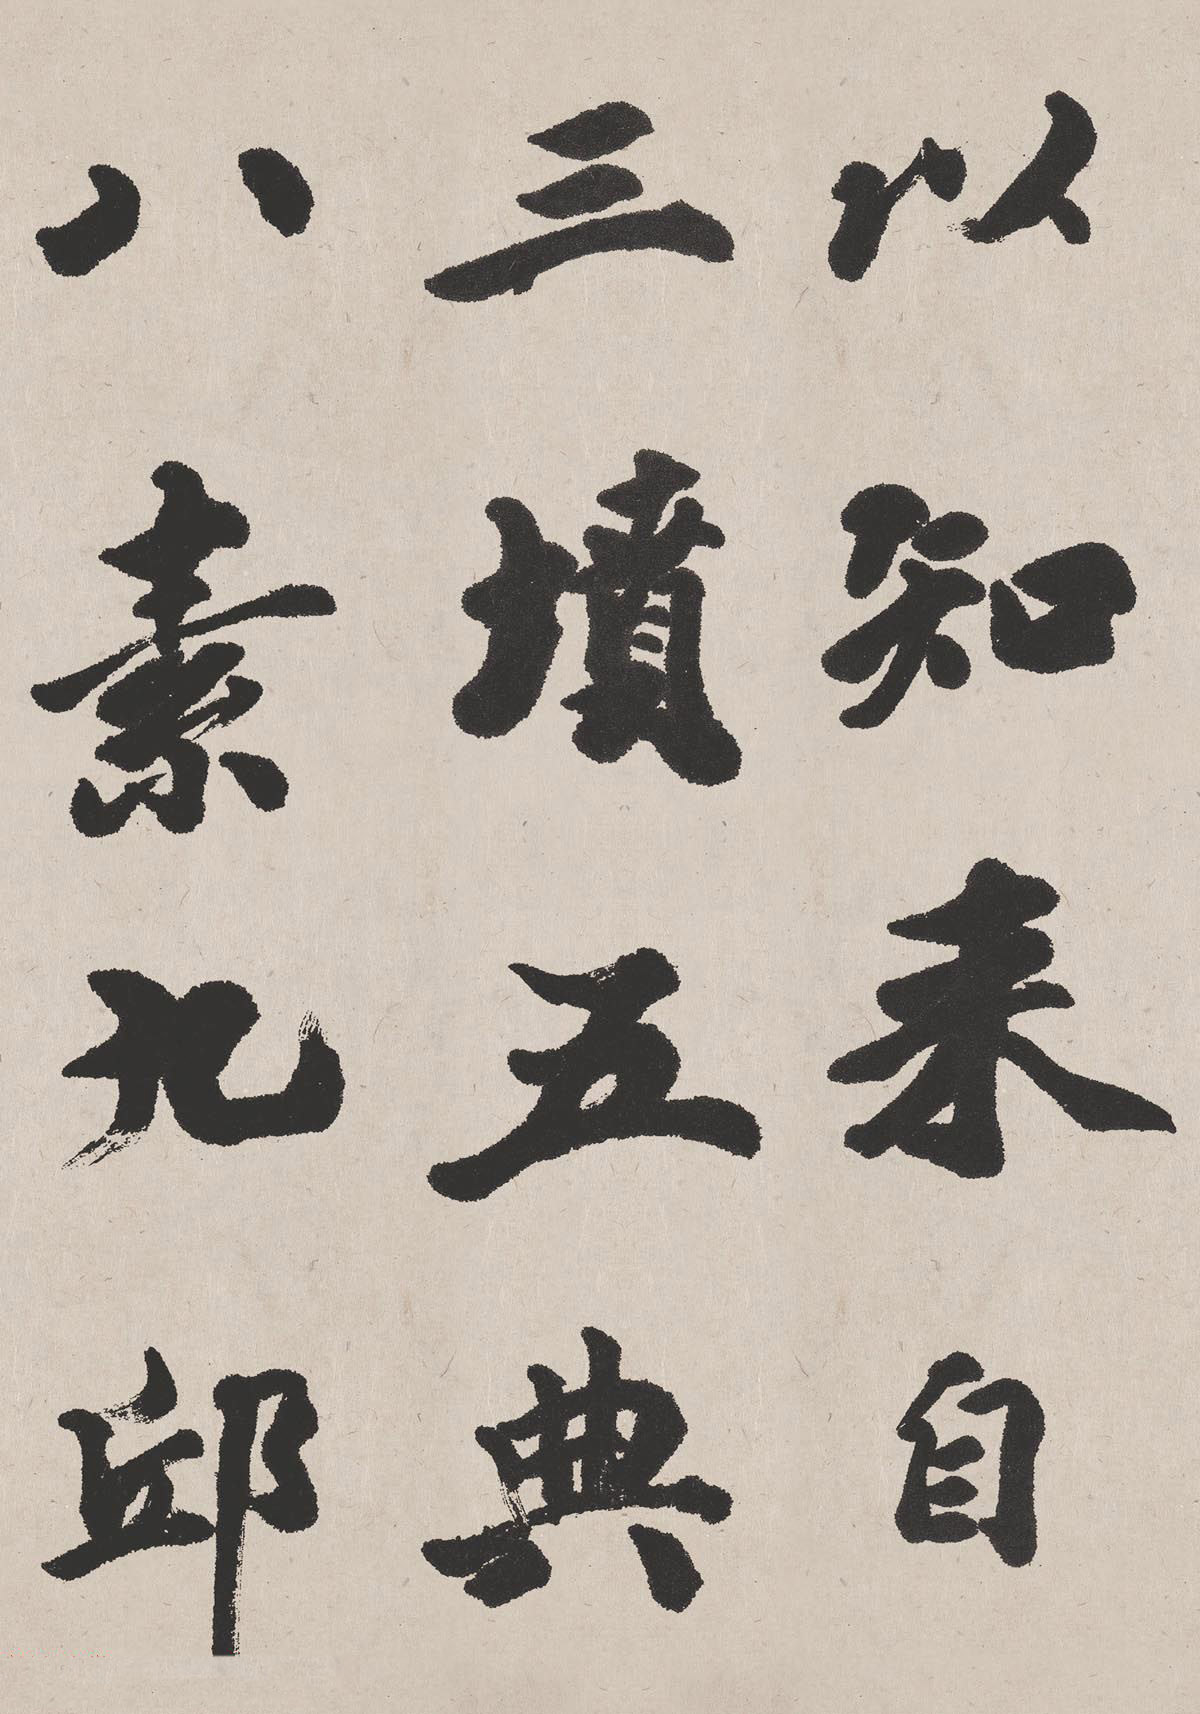 以知来自
三墳五典
八素九邱